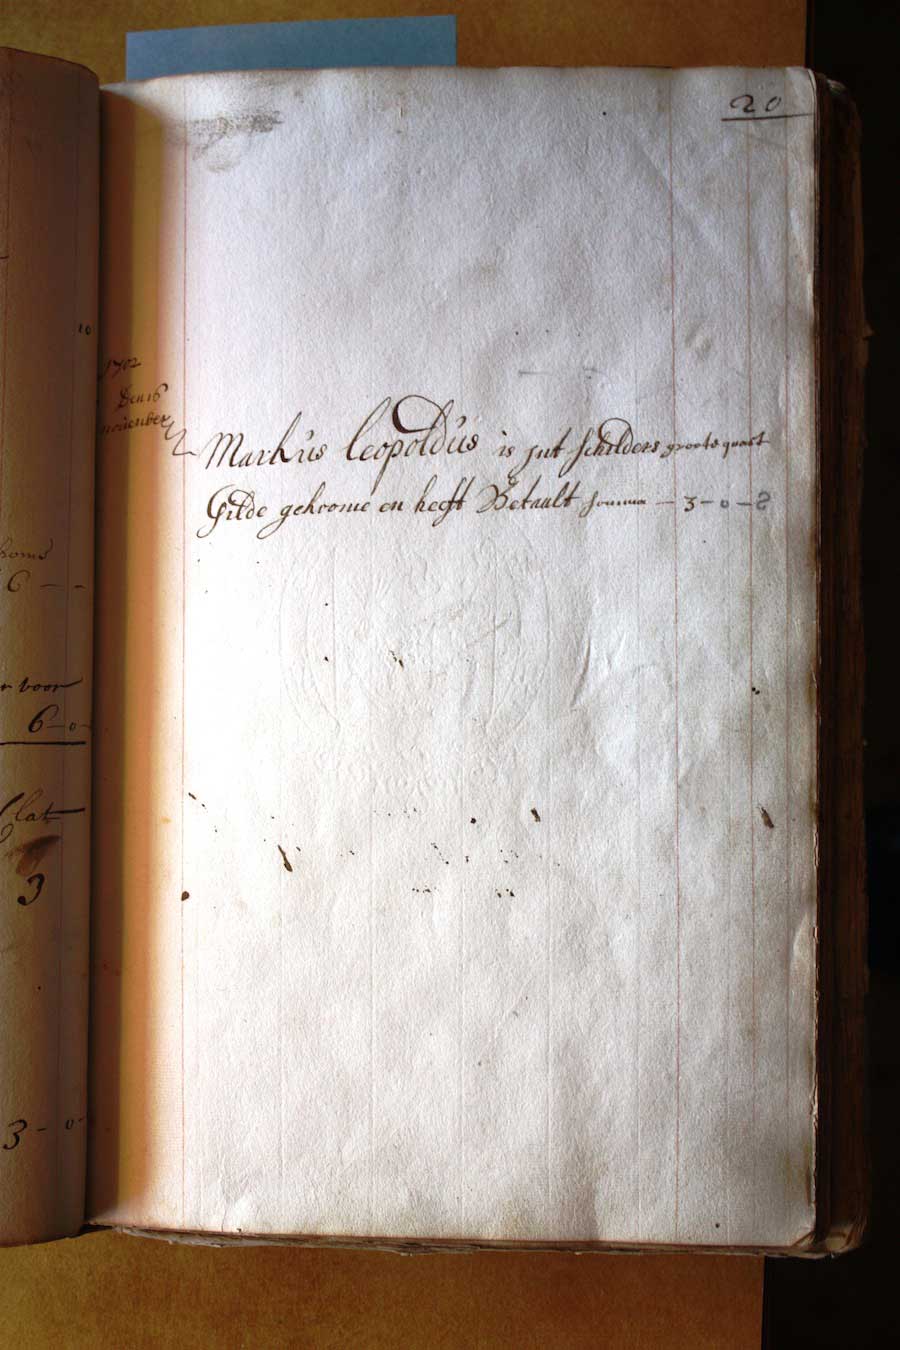 20
10
1702
Den 16
november
Markus leopoldus is jnt schilders groote quart
Gilde gekoome en heeft Betaalt somma — 3 – 0 –
6 — -
voor
6 – 0 –
lat
3
3 – 0 –